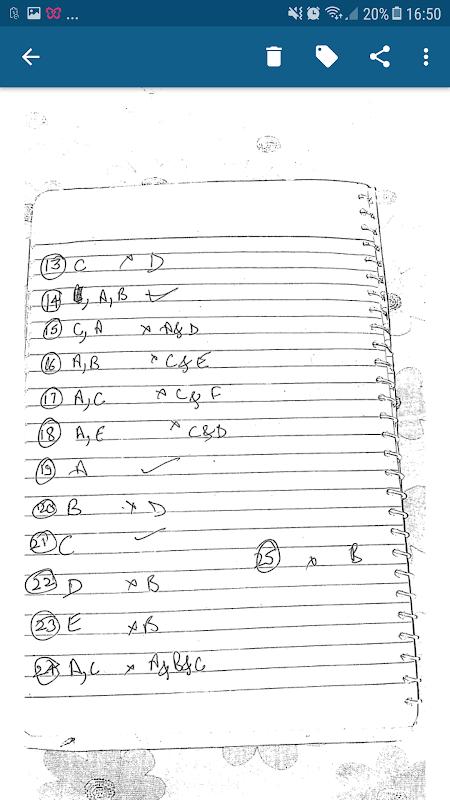 ... 20% 16:50
13 C × D
14 A, B ✓
15 C, A × A&D
16 A, B × C&E
17 A, C × C&F
18 A, E × C&D
19 A ✓
20 B × D
21 C ✓
25 × B
22 D × B
23 E × B
24 A, C × A&B&C